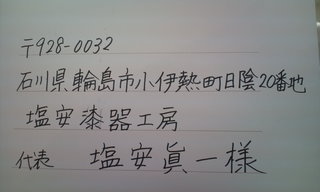 〒928-0032
石川県輪島市小伊勢町日陰20番地
塩安漆器工房
代表 塩安眞一様